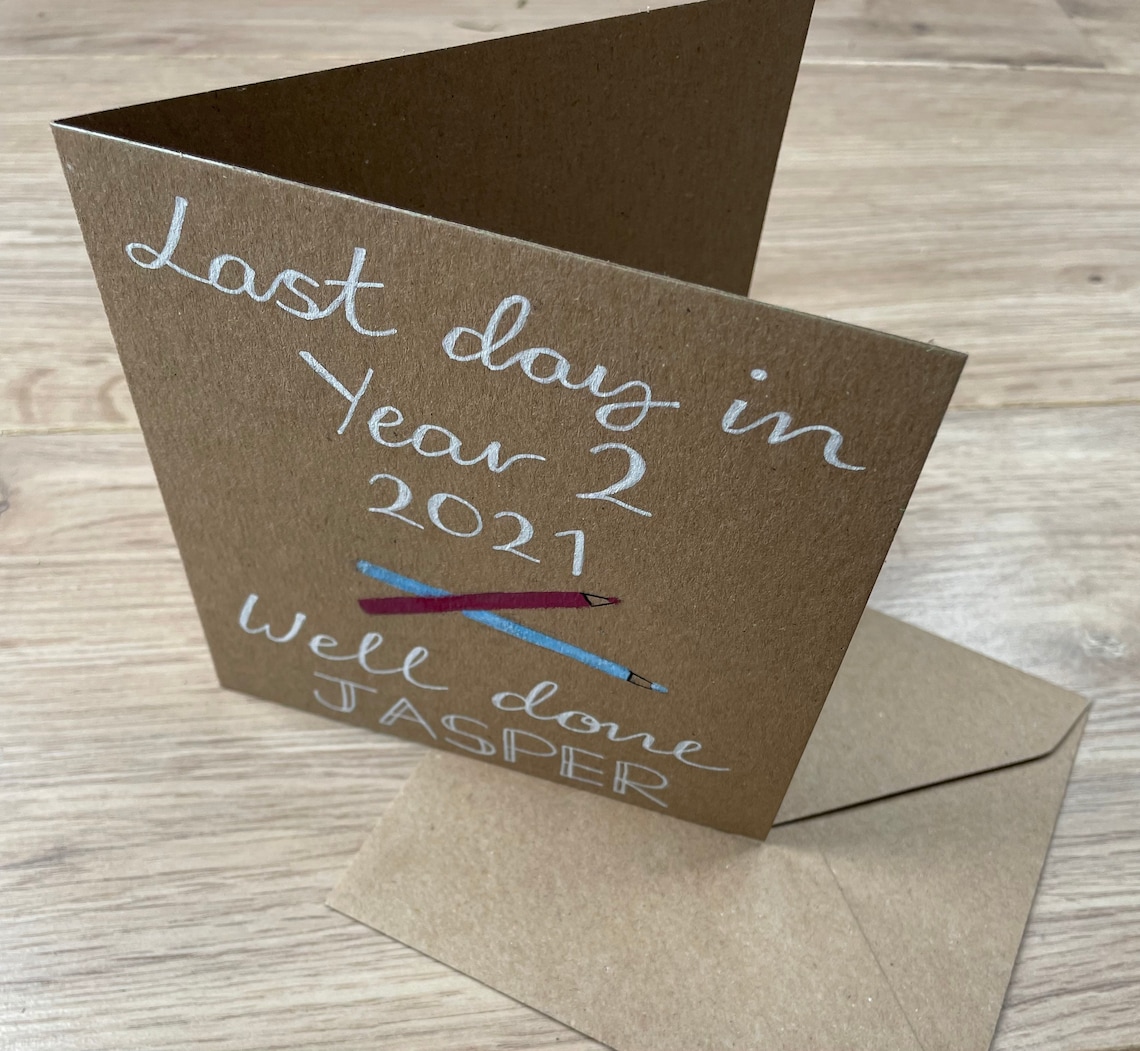 Last day in
Year 2
2021
Well done
JASPER